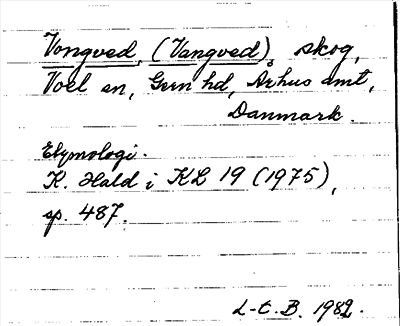 Vongved, (Vangved), skog,
Voel sn, Gern hd, Århus amt,
Danmark.
Etymologi.
K. Hald i KL 19 (1975),
sp. 487.
L-E. B. 1982.